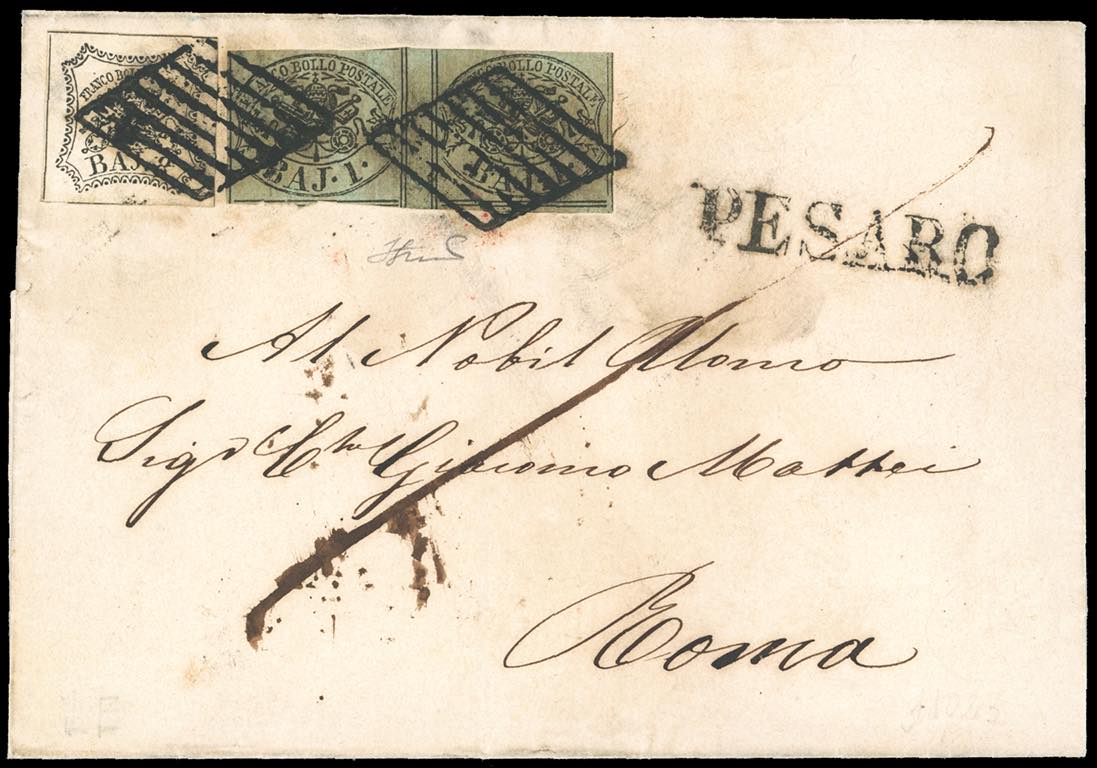 FRANCO BOLLO
BAJ. 2
FRANCO BOLLO POSTALE
BAJ. 1.
FRANCO BOLLO POSTALE
BAJ. 1.
PESARO
Al Nobil Uomo
Sigr Cte Giacomo Mattei
Roma